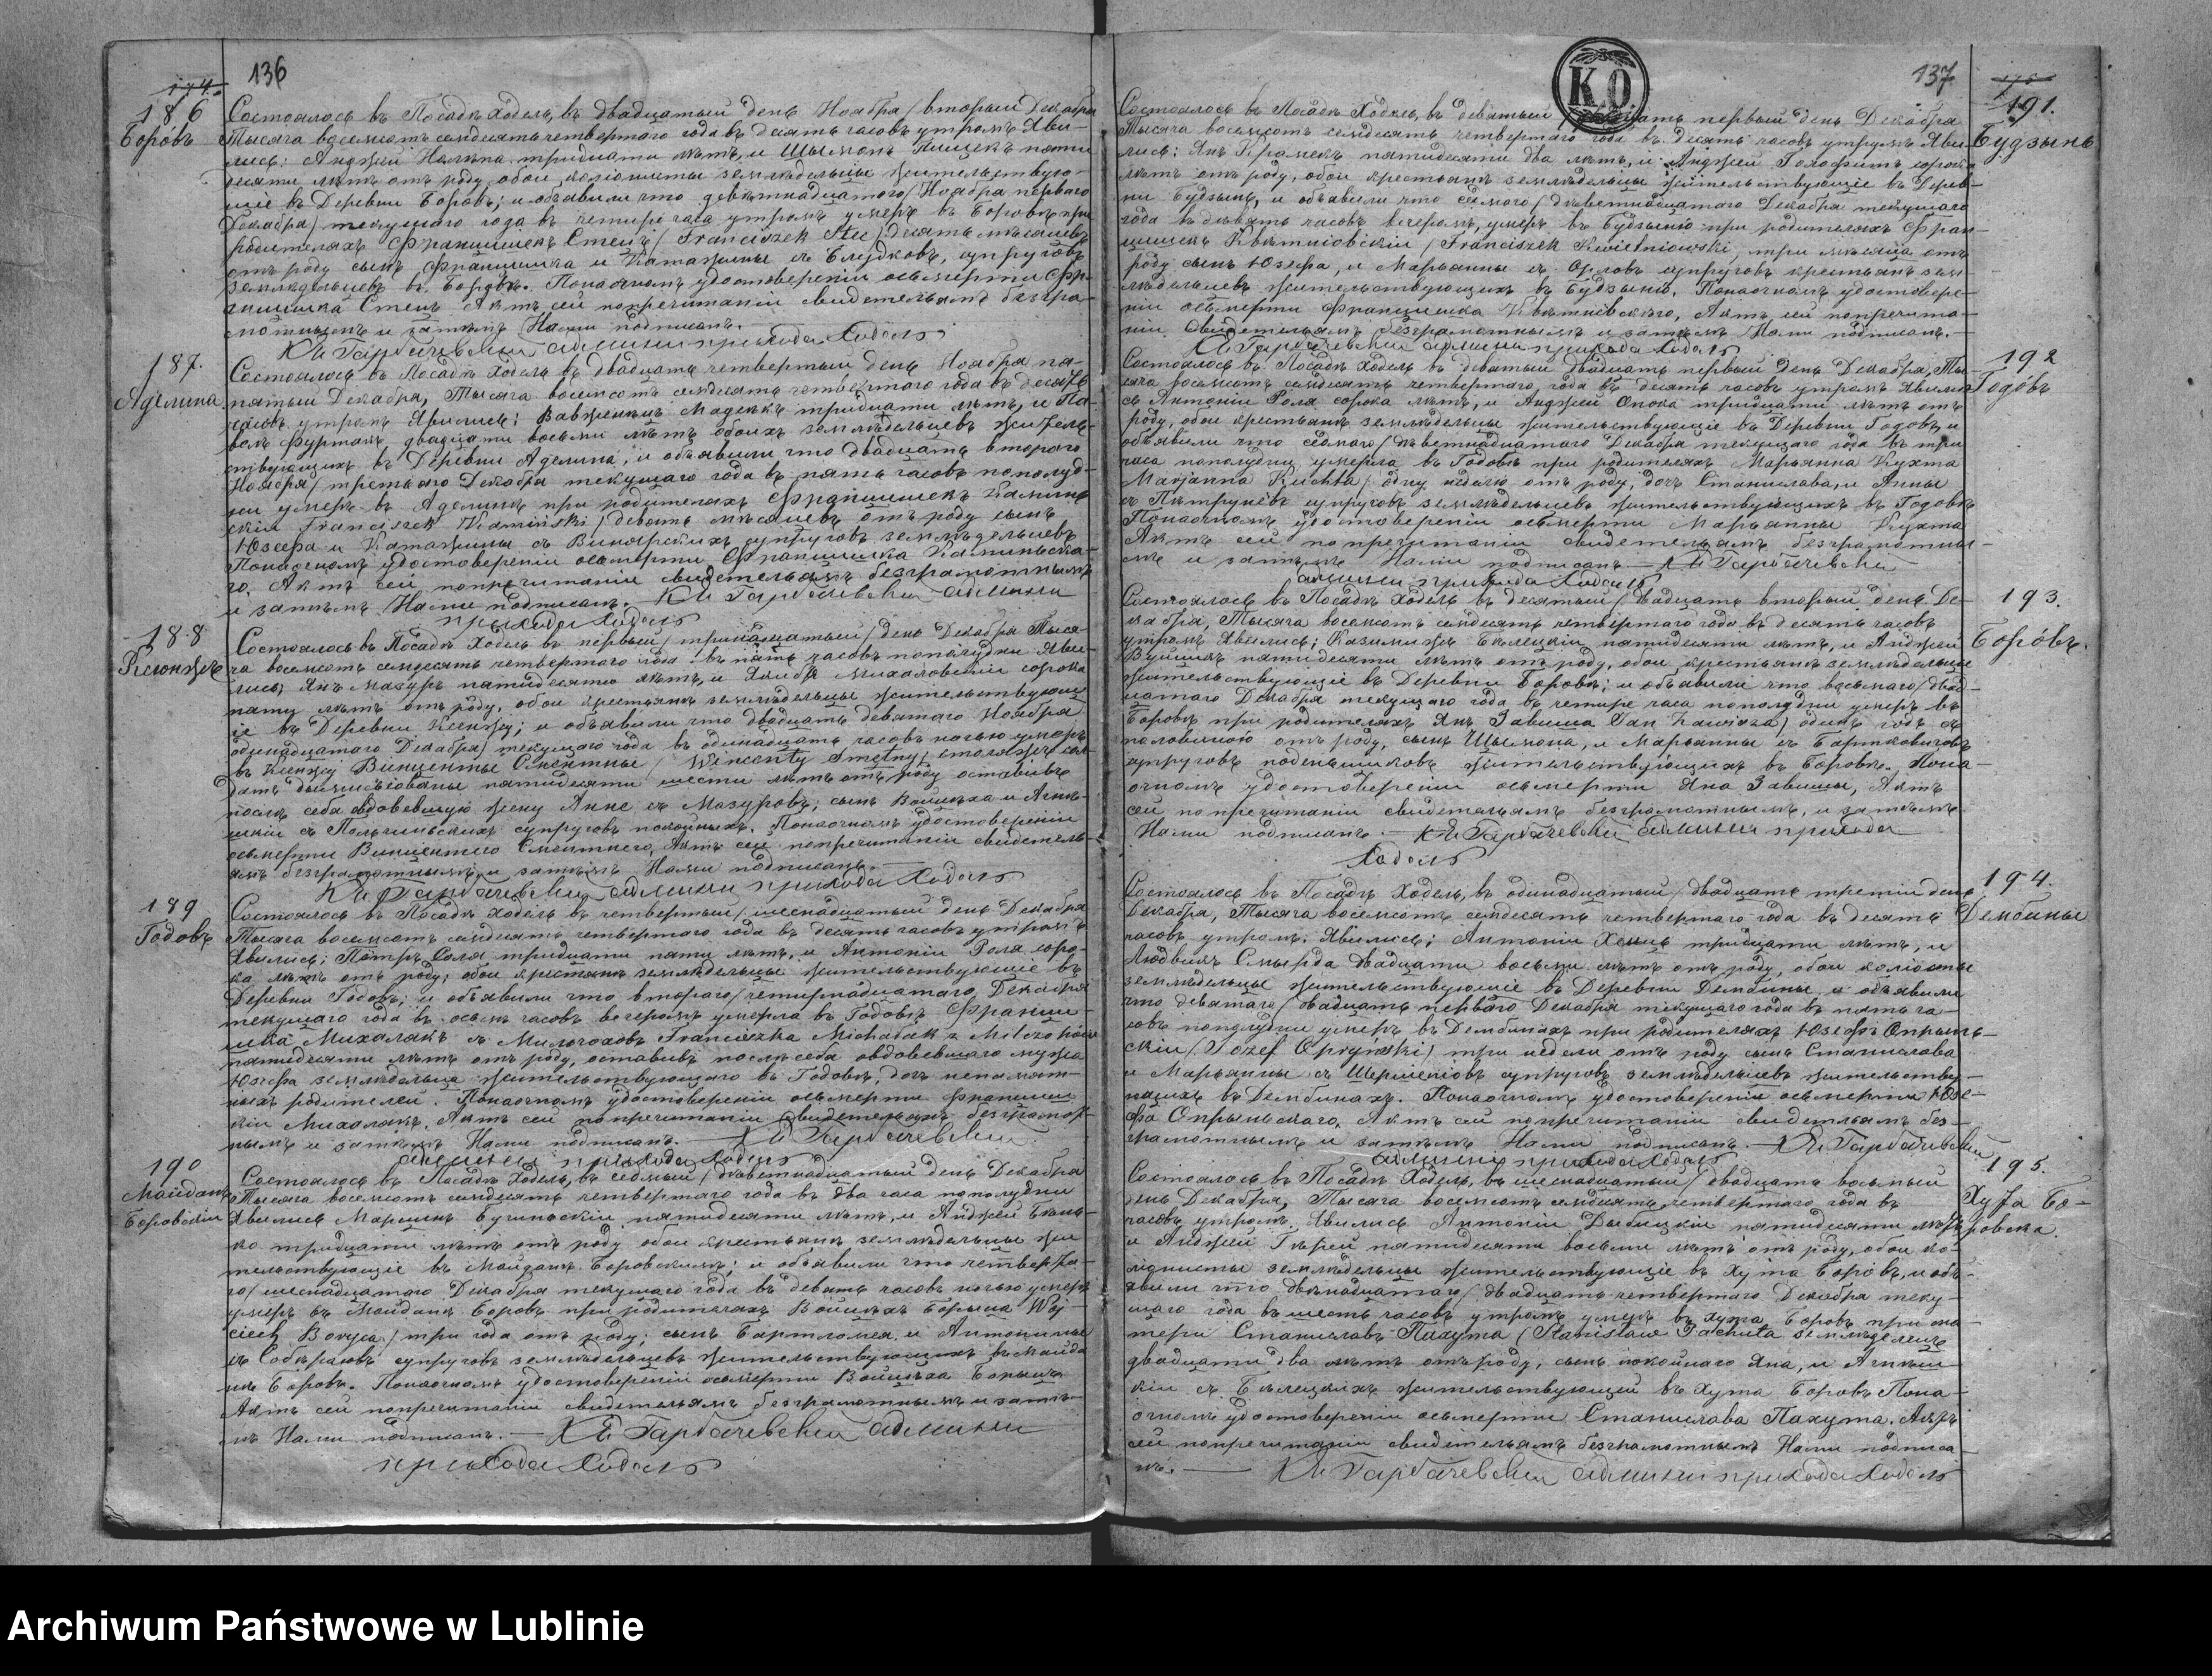 136
174.
186
Боровъ
Состоялось въ Посадѣ Ходель, въ двадцатый день Ноября / вторый Декабря
Тысяча восемсотъ семдесятъ четвертаго года въ десять часовъ утромъ Яви-
лись: Анджей тридцати лѣтъ, и Шымонъ пяти
десяти лѣтъ отъ роду, обои колонисты земледѣльцы жительствую-
щіе въ Деревни Боровъ; и объявили что девятнадцатаго / Ноября перваго
Декабря / текущаго года въ четыре часа утромъ умеръ въ Боровѣ при
родителяхъ Францишекъ Стец / Franciszek Stec / десять мѣсяцевъ
отъ роду сынъ Францишка и Катажины съ супруговъ
земледѣльцевъ въ Боровѣ. Понаочномъ удостовереніи освмерти Фр-
анцишка Стецъ Актъ сей попречитаніи свидетелямъ безгра-
мотнымъ и затѣмъ Нами подписанъ.
К И Гарбачевскій админи прихода Ходель
187.
Аделина
Состоялось въ Посадѣ Ходель въ двадцать четвертый день Ноября ша-
пятый Декабря, Тысяча восемсотъ семдесятъ четвертаго года въ десять
часовъ утромъ Явились: Вавженецъ тридцати лѣтъ, и Па-
велъ Фурманъ двадцати восьми лѣтъ обоихъ земледѣльцевъ житель-
ствующихъ въ Деревни Аделина, и объявили что двадцать втораго
Ноября / третьяго Декабря текущаго года въ пять часовъ пополуд-
ни умеръ въ Аделинѣ при родителяхъ Францишекъ Камин-
скій Franciszek Kamiński / девять мѣсяцевъ отъ роду сынъ
Юзефа и Катажины съ супруговъ земледѣльцевъ
Понаочномъ удостовереніи освмерти Францишка Каминьска-
го, Актъ сей попречитаніи свидетелямъ безграмотнымъ
и затѣмъ Нами подписанъ. К И Гарбачевскій админи
прихода Ходель
188
Ксенжи
Состоялось въ Посадѣ Ходель въ первый / тринадцатый / день Декабря Тыся-
ча восемсотъ семдесятъ четвертаго года въ пять часовъ пополудни Яви-
лись Янъ Мазуръ пятидесяти лѣтъ, и Якубъ Михаловскій сорока
пяти лѣтъ отъ роду, обои крестьянъ земледѣльцы жительствующі
іе въ Деревни Ксенжи; и объявили что двадцать девятаго Ноября
одинадцатаго Декабря / текущаго года въ одинадцать часовъ ночью умеръ
въ Ксенжи Винценты Сментны / Wincenty Smętny, отставной сол-
датъ пятидесяти шести лѣтъ отъ роду оставивъ
послѣ себя овдовевшую жену Анне съ Мазуровъ; сынъ Войцѣха и Агне-
шкіи съ супруговъ покойныхъ. Понаочномъ удостовереніи
освмерти Винцентего Сментнего, Актъ сей попречитаніи свидетель-
ямъ безграмотнымъ и затѣмъ Нами подписанъ.
К И Гарбачевскій админи прихода Ходель
189
Годовъ
Состоялось въ Посадѣ Ходель въ четвертый / шеснадцатый день Декабря
Тысяча восемсотъ семдесятъ четвертаго года въ десять часовъ утромъ
Явились: Петръ Соля тридцати пяти лѣтъ, и Антоній Роля соро-
ка лѣтъ отъ роду; обои крестьянъ земледѣльцы жительствующіе въ
Деревни Годовъ; и объявили что втораго / четырнадцатаго Декабря
текущаго года въ осемъ часовъ вечеромъ умерла въ Годовѣ Франци-
шка Михалякъ съ Милочоховъ Franciszka Michalak z
пятидесяти лѣтъ отъ роду, оставивъ послѣ себя овдовевшаго мужа
Юзефа земледѣльца жительствующаго въ Годовѣ, дочь
ныхъ родителей. Понаочномъ удостовереніи освмерти Францишки
Михалякъ, Актъ сей попречитаніи свидетелямъ безграмот-
нымъ и затѣмъ Нами подписанъ. К И Гарбачевскій
админи прихода Ходель
190
Майданъ
Боровскій
Состоялось въ Посадѣ Ходель, въ седмый / девятнадцатый день Декабря
Тысяча восемсотъ семдесятъ четвертаго года въ два часа пополудни
Явились Марцинъ пятидесяти лѣтъ, и Анджей
ко тридцати лѣтъ отъ роду обои крестьянъ земледѣльцы жи
тельствующіе въ Майданѣ Боровскимъ; и объявили что четверта-
го / шеснадцатаго Декабря текущаго года въ девять часовъ ночью умеръ
умеръ въ Майданѣ Боровъ при родителяхъ Войцѣхъ Борыца Woj-
ciech Boryca / три года отъ роду; сынъ Бартломея, и Антонины
съ супруговъ земледѣльцевъ жительствующихъ въ Майда
нѣ Боровъ. Понаочномъ удостовереніи освмерти Войцѣха Борыца
Актъ сей попречитаніи свидетелямъ безграмотнымъ и затѣ-
мъ Нами подписанъ. К И Гарбачевскій админи
прихода Ходель
К О
137
191.
Будзынь
Состоялось въ Посадѣ Ходель, въ девятый / двадцать первый день Декабря
Тысяча восемсотъ семдесятъ четвертаго года въ десять часовъ утромъ Яви-
лись: Янъ пятидесяти два лѣтъ, и Анджей сорока
лѣтъ отъ роду, обои крестьянъ земледѣльцы жительствующіе въ Дерев-
ни Будзынь, и объявили что седмаго / девятнадцатаго Декабря текущаго
года въ девять часовъ вечеромъ, умеръ въ Будзыню при родителяхъ Фран-
цишекъ Квѣтніовскіи / Franciszek Kwietniowski, три мѣсяца отъ
роду сынъ Юзефа, и Марьянны съ Орловъ супруговъ крестьянъ зем-
ледѣльцевъ жительствующихъ въ Будзыню. Понаочномъ удостовере-
ніи освмерти Францишка Квѣтніовскего, Актъ сей попречита-
ніи свидетелямъ безграмотнымъ и затѣмъ Нами подписанъ.
К И Гарбачевскій админи прихода Ходель
192
Годовъ
Состоялось въ Посадѣ Ходель въ девятый двадцать первый день Декабря, Ты-
сяча восемсотъ семдесятъ четвертаго, года въ десять часовъ утромъ Явили
сь Антоніи Роля сорока лѣтъ, и Анджей Опока тридцати лѣтъ отъ
роду, обои крестьянъ земледѣльцы жительствующіе въ Деревни Годовъ, и
объявили что седмаго / девятнадцатаго Декабря текущаго года въ три
часа пополудни умерла въ Годовѣ при родителяхъ Марьянна Кухта
Marjanna Kuchta / одну неделю отъ роду, дочь Станислава, и Анны
съ супруговъ земледѣльцевъ жительствующихъ въ Годовѣ
Понаочномъ удостовереніи освмерти Марьянны Кухта
Актъ сей попречитаніи свидетелямъ безграмотны-
мъ и затѣмъ Нами подписанъ К И Гарбачевскій
админи прихода Ходель
193.
Боровъ.
Состоялось въ Посадѣ Ходель въ десятый / двадцать вторый день Де-
кабря, Тысяча восемсотъ семдесятъ четвертаго года въ десять часовъ
утромъ Явились; Казимиръ пятидесяти лѣтъ, и Анджей
Вуйцикъ пятидесяти лѣтъ отъ роду, обои крестьянъ земледѣльцы
жительствующіе въ Деревни Боровъ; и объявили что восьмаго / двад-
цатаго Декабря текущаго года въ четыре часа пополудни умеръ въ
Боровѣ при родителяхъ Янъ Завиша Jan Zawisza / одинъ годъ съ
половиною отъ роду, сынъ Шымона, и Марьянны съ Бартковичовъ
супруговъ поденьщиковъ жительствующихъ въ Боровѣ. Пона-
очномъ удостовереніи освмерти Яна Завишы, Актъ
сей попречитаніи свидетелямъ безграмотнымъ, и затѣмъ
Нами подписанъ. К И Гарбачевскій админи прихода
Ходель
194.
Дембины
Состоялось въ Посадѣ Ходель, въ одинадцатый / двадцать третій день
Декабря, Тысяча восемсотъ семдесятъ четвертаго года въ десять
часовъ утромъ. Явились; Антоній тридцати лѣтъ, и
Людвикъ Смырда двадцати восьми лѣтъ отъ роду, обои колонисты
земледѣльцы жительствующіе въ Деревни Дембины и объявили
что девятаго / двадцать перваго Декабря текущаго года въ пять ча-
совъ пополудни умеръ въ Дембинахъ при родителяхъ Юзефъ Опрынь-
скій / Józef Opryński / три недели отъ роду сынъ Станислава
и Марьянны съ супруговъ земледѣльцевъ жительству-
ющихъ въ Дембинахъ. Понаочномъ удостовереніи освмерти Юзе-
фа Опрыньскаго, Актъ сей попречитаніи свидетелямъ без-
грамотнымъ и затѣмъ Нами подписанъ. К И Гарбачевскій
админи прихода Ходель
195.
Хута Бо-
ровска.
Состоялось въ Посадѣ Ходель, въ шеснадцатый / двадцать восьмый
день Декабря, Тысяча восемсотъ семдесятъ четвертаго года въ
часовъ утромъ. Явились Антоніи пятидесяти лѣтъ
и Анджей пятидесяти восьми лѣтъ отъ роду, обои ко-
лонисты земледѣльцы жительствующіе въ Хута Боровъ, и объ-
явили что двѣнадцатаго / двадцать четвертаго Декабря теку-
щаго года въ шесть часовъ утромъ умеръ въ Хута Боровъ при ма-
тери Станиславъ Пахута (Stanisław Pachuta земледелецъ
двадцати два лѣтъ отъ роду, сынъ покойнаго Яна, и Агнеш-
кіи съ жительствующей въ Хута Боровъ Пона-
очномъ удостовереніи освмерти Станислава Пахута. Актъ
сей попречитаніи свидетелямъ безграмотнымъ Нами подписа-
нъ. К И Гарбачевскій админи прихода Ходель
Archiwum Państwowe w Lublinie